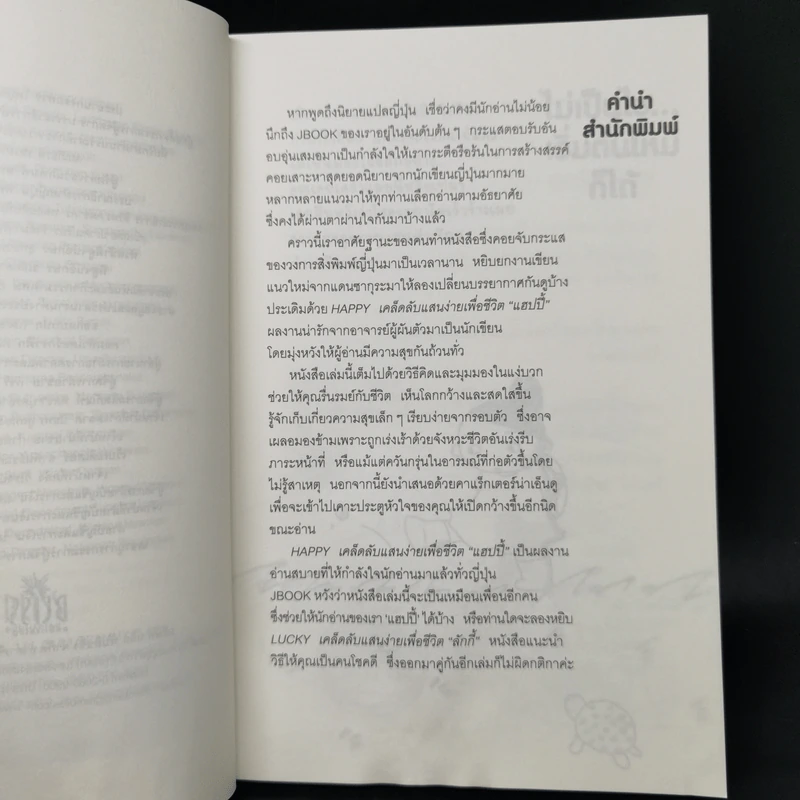 คำนำ
สำนักพิมพ์
หากพูดถึงนิยายแปลญี่ปุ่น เชื่อว่าคงมีนักอ่านไม่น้อย
นึกถึง JBOOK ของเราอยู่ในอันดับต้น ๆ กระแสตอบรับอัน
อบอุ่นเสมอมาเป็นกำลังใจให้เรากระตือรือร้นในการสร้างสรรค์
คอยเสาะหาสุดยอดนิยายจากนักเขียนญี่ปุ่นมากมาย
หลากหลายแนวมาให้ทุกท่านเลือกอ่านตามอัธยาศัย
ซึ่งคงได้ผ่านตาผ่านใจกันมาบ้างแล้ว
คราวนี้เราอาศัยฐานะของคนทำหนังสือซึ่งคอยจับกระแส
ของวงการสิ่งพิมพ์ญี่ปุ่นมาเป็นเวลานาน หยิบยกงานเขียน
แนวใหม่จากแดนซากุระมาให้ลองเปลี่ยนบรรยากาศกันดูบ้าง
ประเดิมด้วย HAPPY เคล็ดลับแสนง่ายเพื่อชีวิต "แฮปปี้"
ผลงานน่ารักจากอาจารย์ผู้ผันตัวมาเป็นนักเขียน
โดยมุ่งหวังให้ผู้อ่านมีความสุขกันถ้วนทั่ว
หนังสือเล่มนี้เต็มไปด้วยวิธีคิดและมุมมองในแง่บวก
ช่วยให้คุณรื่นรมย์กับชีวิต เห็นโลกกว้างและสดใสขึ้น
รู้จักเก็บเกี่ยวความสุขเล็ก ๆ เรียบง่ายจากรอบตัว ซึ่งอาจ
เผลอมองข้ามเพราะถูกเร่งเร้าด้วยจังหวะชีวิตอันเร่งรีบ
ภาระหน้าที่ หรือแม้แต่ควันกรุ่นในอารมณ์ที่ก่อตัวขึ้นโดย
ไม่รู้สาเหตุ นอกจากนี้ยังนำเสนอด้วยคาแร็กเตอร์น่าเอ็นดู
เพื่อจะเข้าไปเคาะประตูหัวใจของคุณให้เปิดกว้างขึ้นอีกนิด
ขณะอ่าน
HAPPY เคล็ดลับแสนง่ายเพื่อชีวิต "แฮปปี้" เป็นผลงาน
อ่านสบายที่ให้กำลังใจนักอ่านมาแล้วทั่วญี่ปุ่น
JBOOK หวังว่าหนังสือเล่มนี้จะเป็นเหมือนเพื่อนอีกคน
ซึ่งช่วยให้นักอ่านของเรา 'แฮปปี้' ได้บ้าง หรือท่านใดจะลองหยิบ
LUCKY เคล็ดลับแสนง่ายเพื่อชีวิต "ลักกี้" หนังสือแนะนำ
วิธีให้คุณเป็นคนโชคดี ซึ่งออกมาคู่กันอีกเล่มก็ไม่ผิดกติกาค่ะ